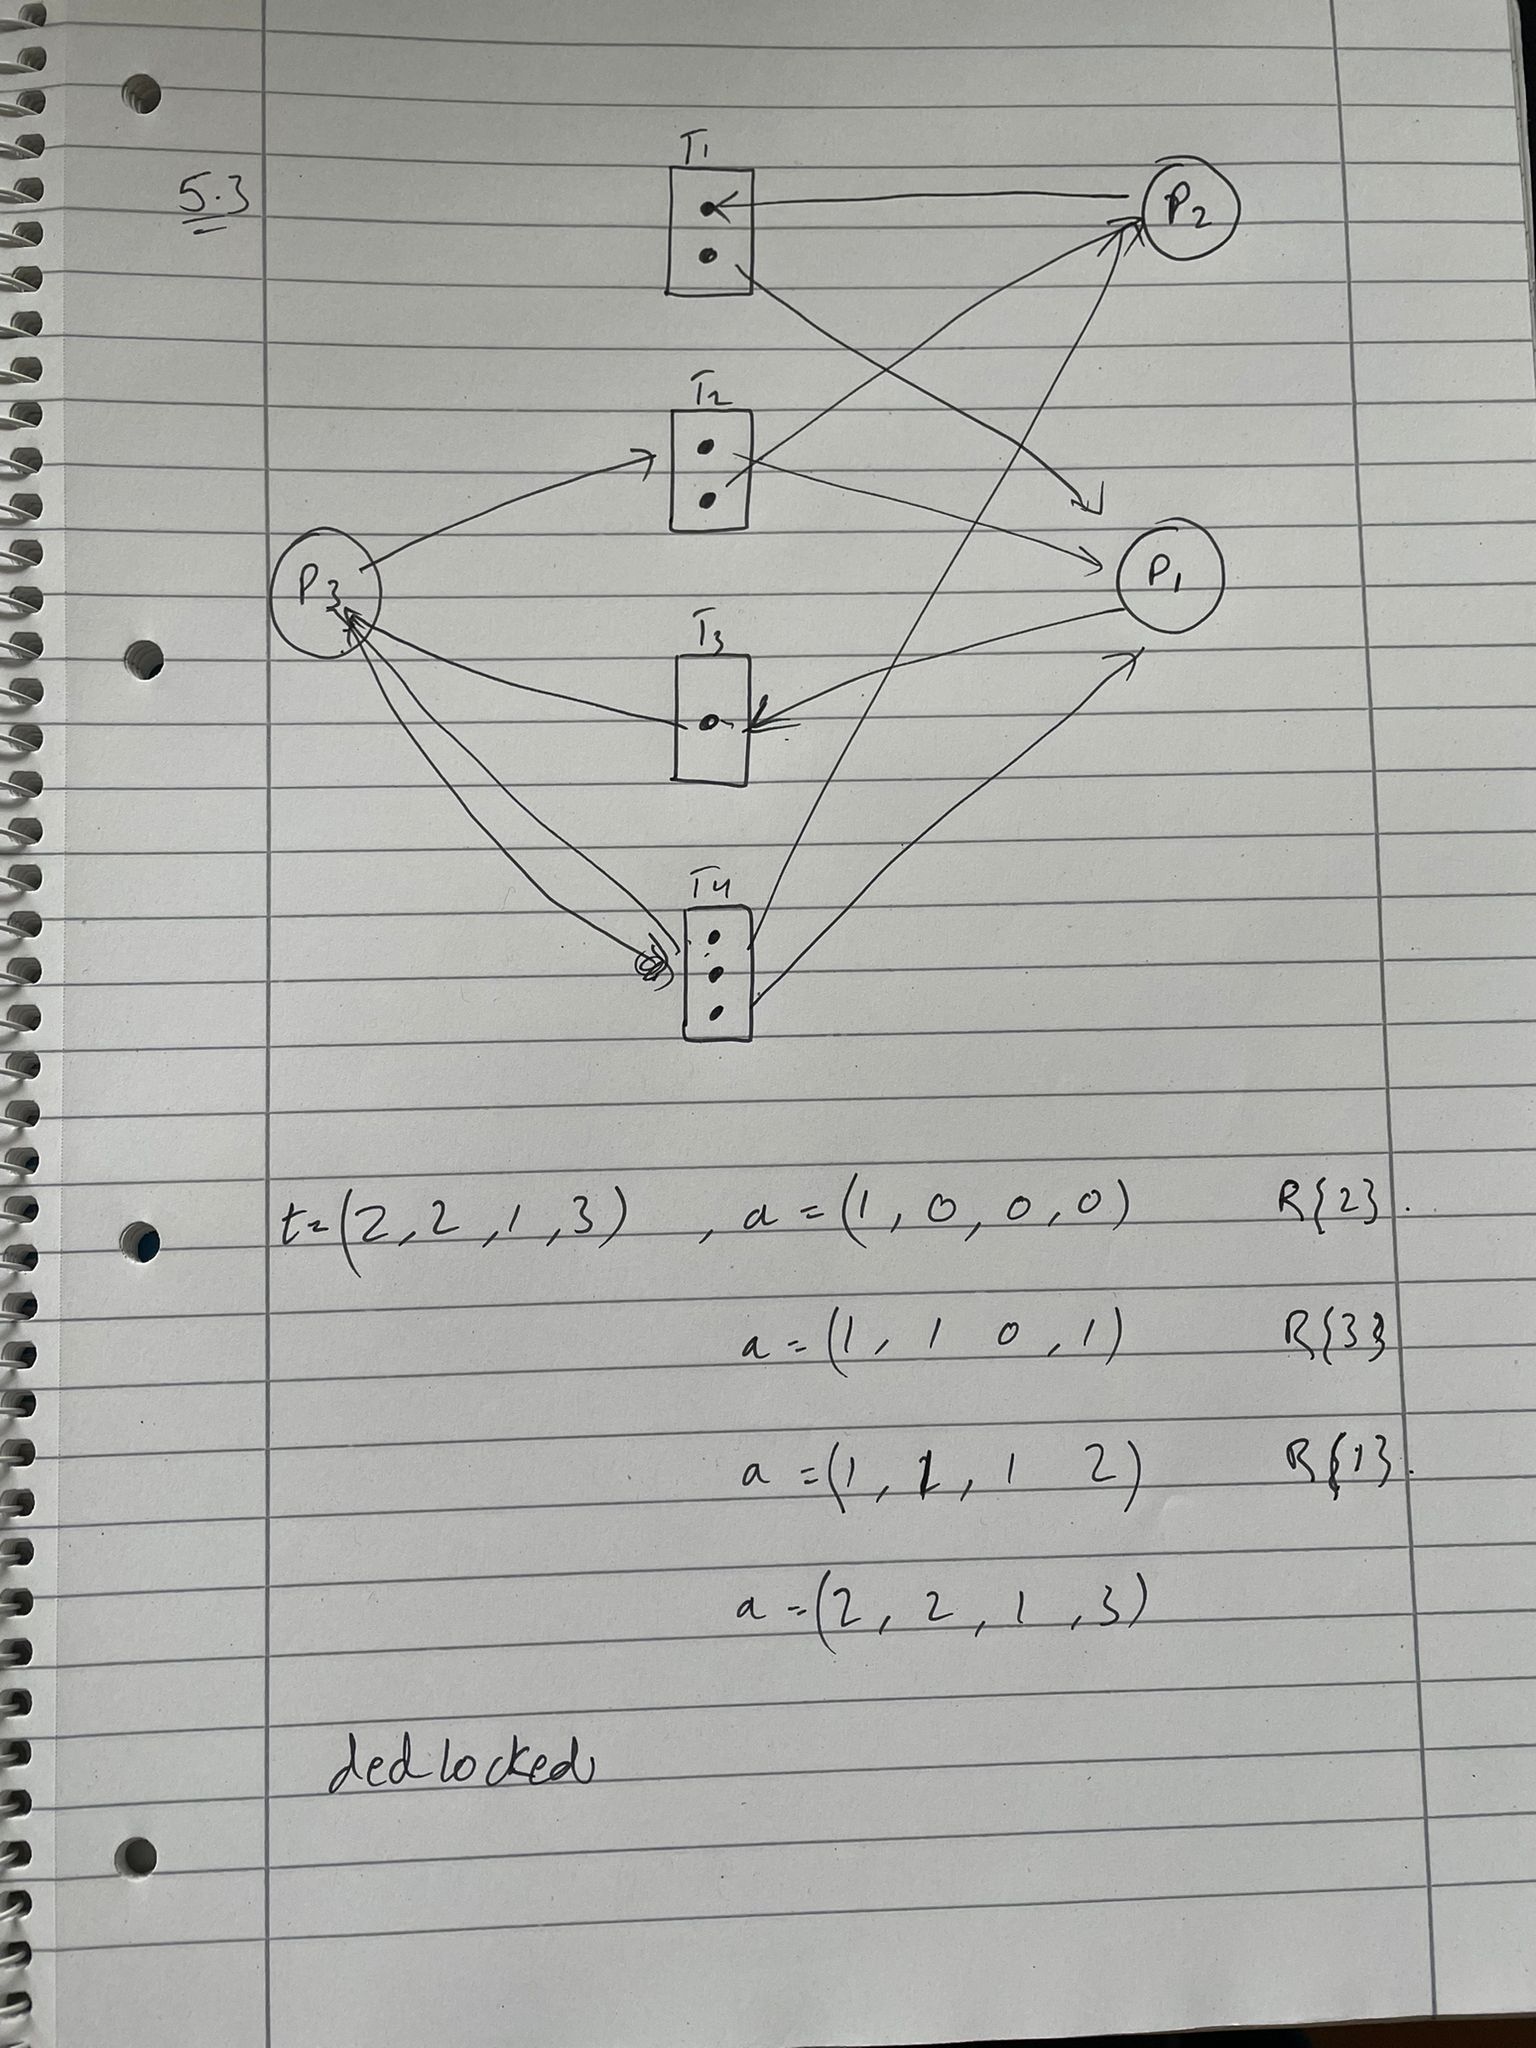 T1
P2
5.3
T2
P3
P1
T3
T4
t=(2,2,1,3) , a=(1,0,0,0) R{2}.
a=(1,1 0,1) R{3}
a=(1,1,1 2) R{1}.
a=(2,2,1,3)
dedlocked